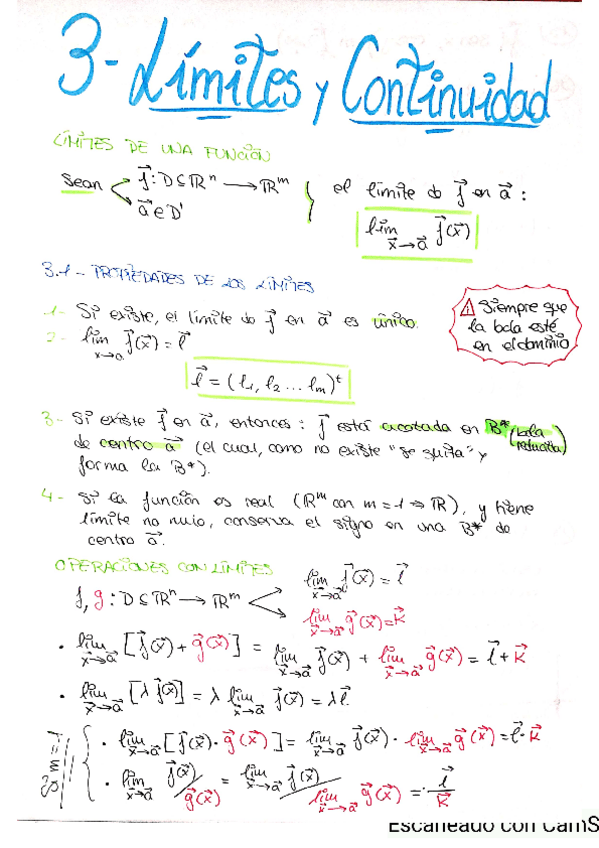 3- Límites y Continuidad
LÍMITES DE UNA FUNCIÓN
Sean f⃗: D⊆ℝⁿ → ℝᵐ
a⃗ ∈ D'
el límite de f⃗ en a⃗ :
lim x⃗→a⃗ f⃗(x⃗)
3.1 - PROPIEDADES DE LOS LÍMITES
1- Si existe, el límite de f⃗ en a⃗ es único.
2- lim x→a f⃗(x⃗) = l⃗
l⃗ = (l₁, l₂ ... lm)ᵗ
⚠ Siempre que
la bola esté
en el dominio
3- Si existe f⃗ en a⃗, entonces : f⃗ está acotada en B* (bola reducida)
de centro a⃗ (el cual, como no existe "se quita" y
forma la B*).
4- Si la función es real (ℝᵐ con m=1 → ℝ), y tiene
límite no nulo, conserva el signo en una B* de
centro a⃗.
OPERACIONES CON LÍMITES
f, g : D⊆ℝⁿ → ℝᵐ
lim x⃗→a⃗ f⃗(x⃗) = l⃗
lim x⃗→a⃗ g⃗(x⃗) = k⃗
• lim x⃗→a⃗ [f⃗(x⃗) + g⃗(x⃗)] = lim x⃗→a⃗ f⃗(x⃗) + lim x⃗→a⃗ g⃗(x⃗) = l⃗ + k⃗
• lim x⃗→a⃗ [λ f⃗(x⃗)] = λ lim x⃗→a⃗ f⃗(x⃗) = λ l⃗
Si m=1
• lim x⃗→a⃗ [f⃗(x⃗) · g⃗(x⃗)] = lim x⃗→a⃗ f⃗(x⃗) · lim x⃗→a⃗ g⃗(x⃗) = l⃗ · k⃗
• lim x⃗→a⃗ f⃗(x⃗) / g⃗(x⃗) = lim x⃗→a⃗ f⃗(x⃗) / lim x⃗→a⃗ g⃗(x⃗) = l⃗ / k⃗
Escaneado con CamS